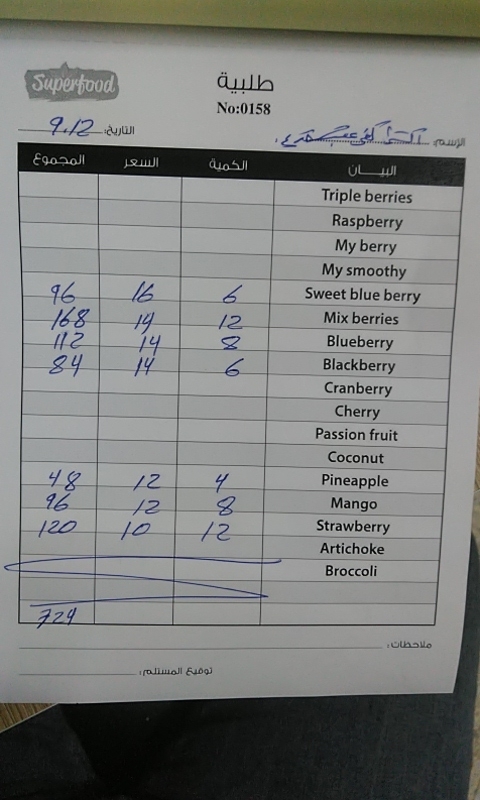 Superfood
طلبية
No:0158
التاريخ: 9.12
الإسم:
البيـــان الكمية السعر المجموع
Triple berries
Raspberry
My berry
My smoothy
Sweet blue berry 6 16 96
Mix berries 12 14 168
Blueberry 8 14 112
Blackberry 6 14 84
Cranberry
Cherry
Passion fruit
Coconut
Pineapple 4 12 48
Mango 8 12 96
Strawberry 12 10 120
Artichoke
Broccoli
724
ملاحظات:
توقيع المستلم: